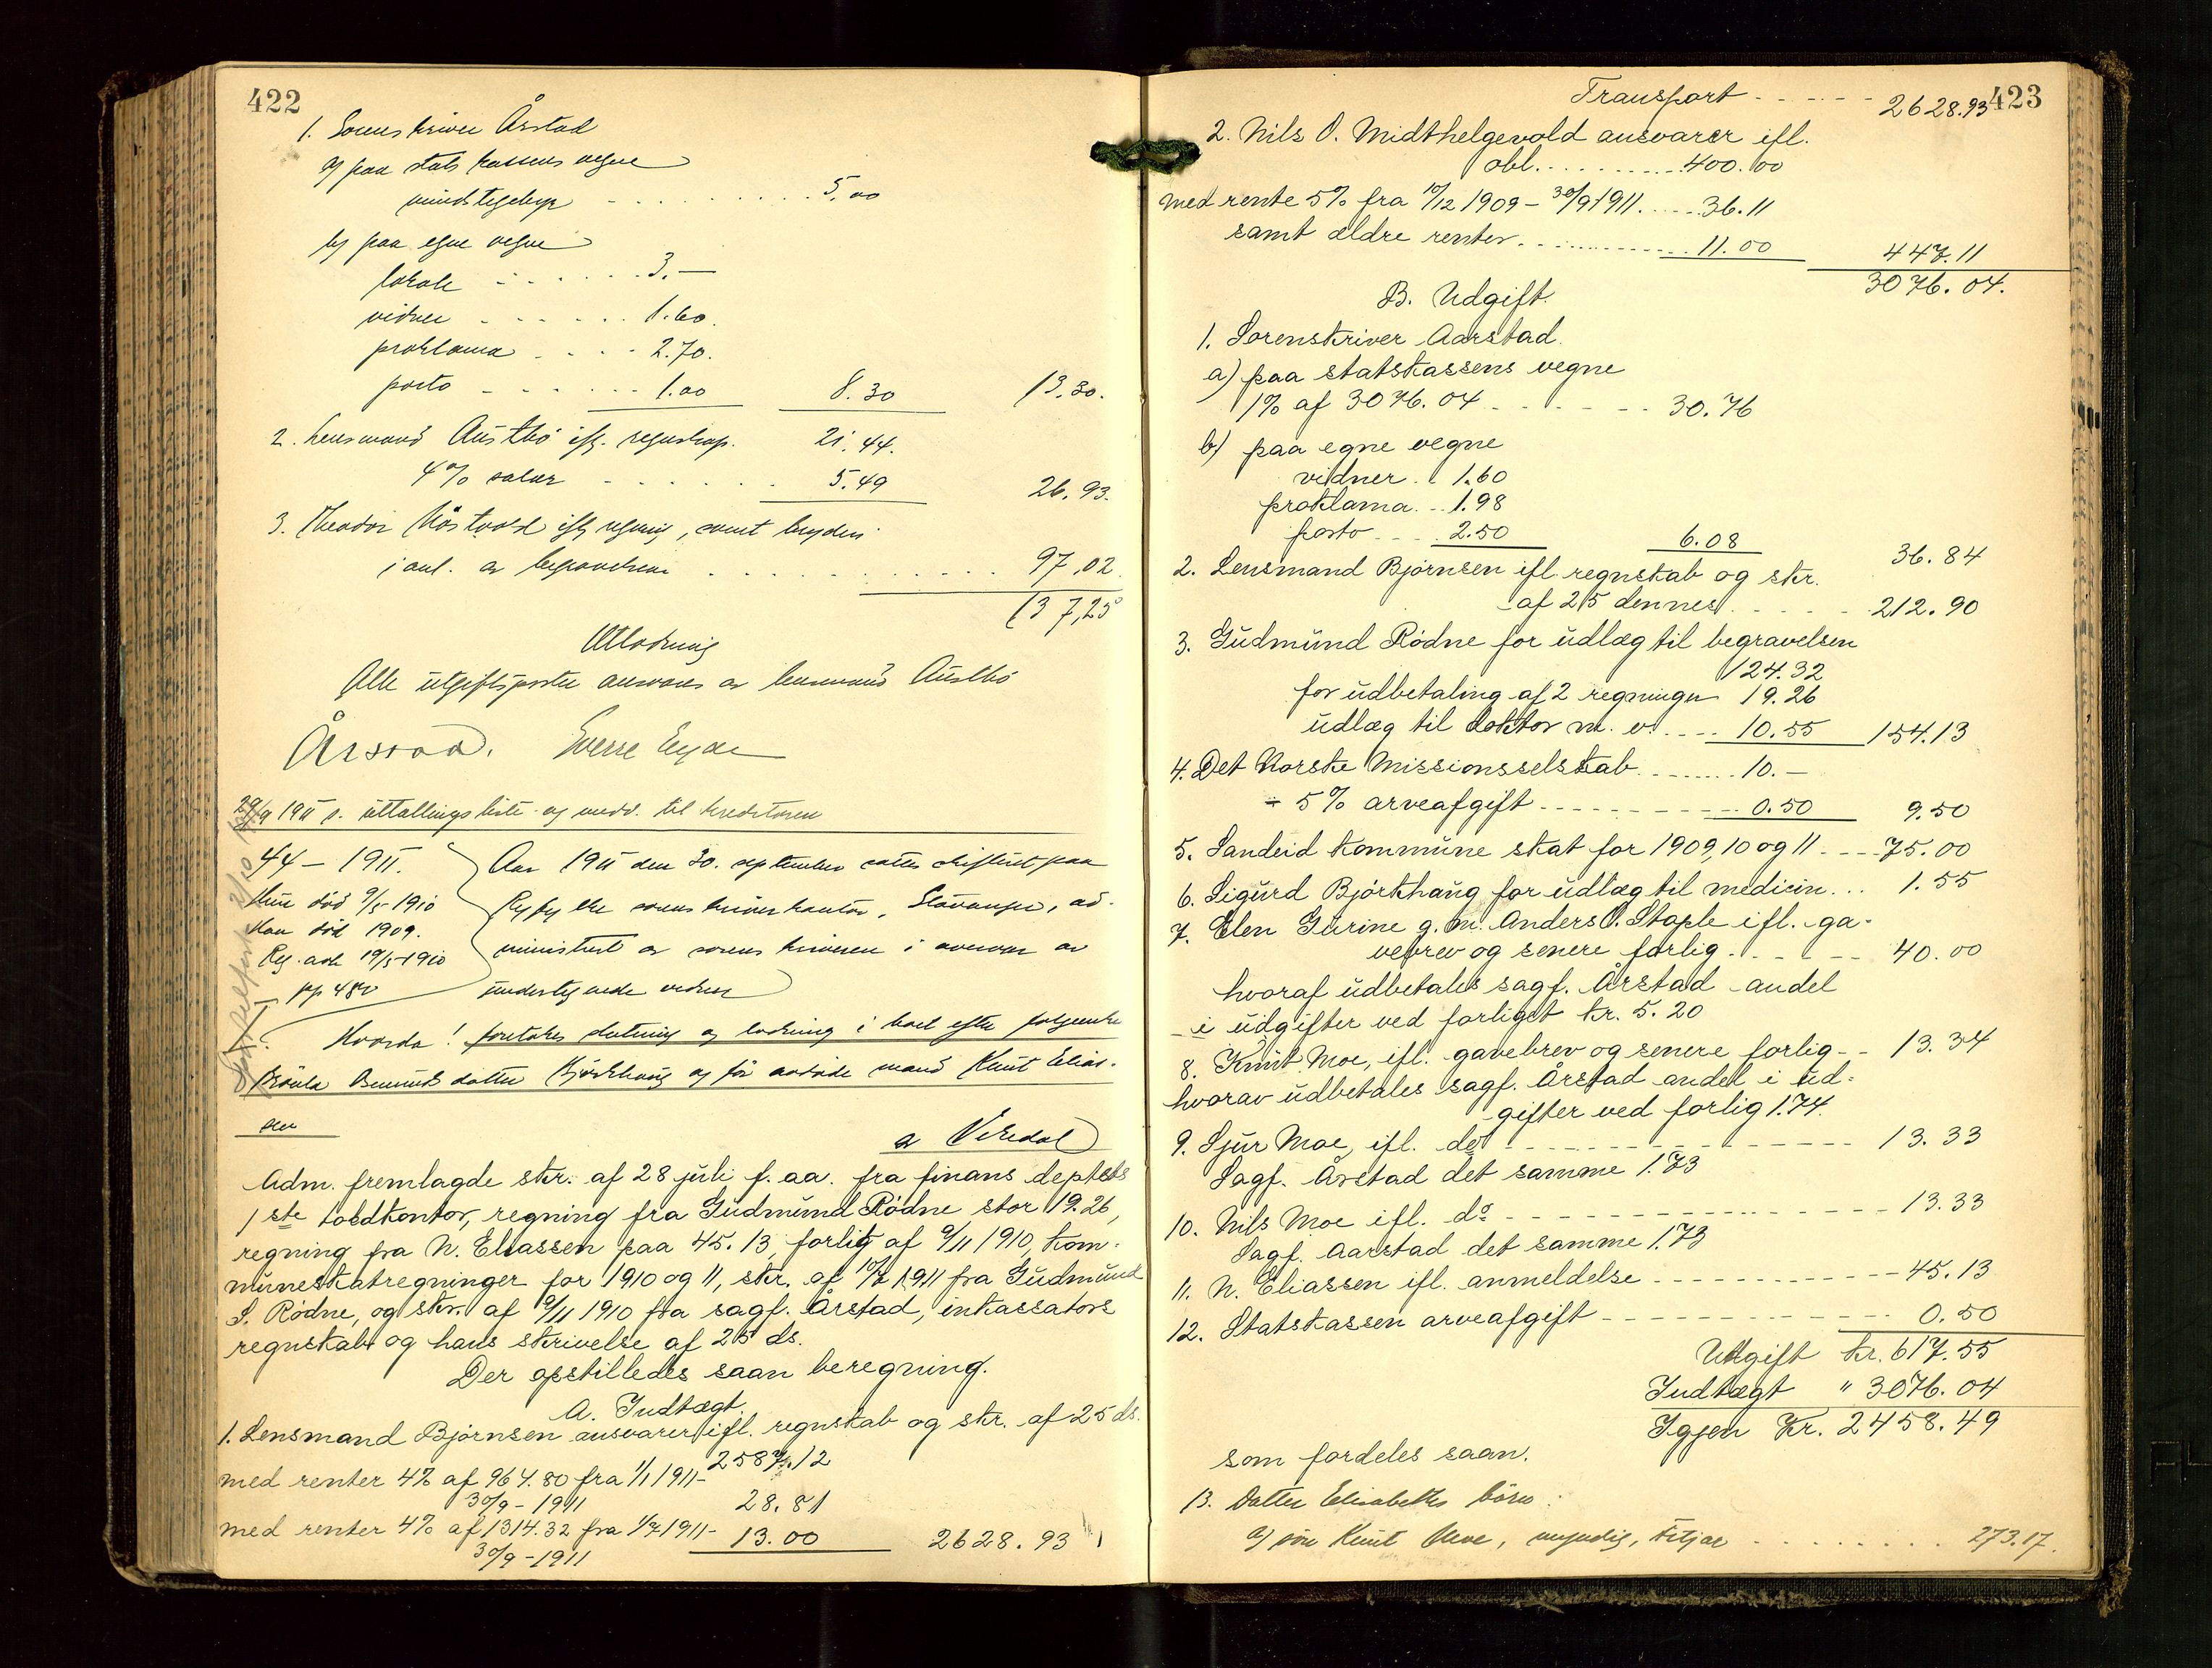 422
1. Sorenskriver Årstad
a) paa statskassens vegne
mindstegebyr - - - - - - 5,00
b) paa egne vegne
lokale - - - - - - 3.—
vidner - - - - - - 1.60.
proklama - - - - 2.70.
porto - - - - - - 1.00 8.30 13.30.
2. Lensmand Austbö ifl. regnskap. 21.44.
4% salær - - - - - - 5.49 26.93.
3. Theodor ifl. regning, samt
i anl. av begravelsen - - - - - - 97,02
137,25
Utlodning
Alle utgiftsposter ansvares av lensmand Austbö
Årstad. Sverre Eyde
29/9 1911 s. uttallingsliste og medd. til kreditoren
44 – 1911.
Hun död 9/5 1910
Han död 1909.
Reg. avh. 19/5 1910
pp 480
Aar 1911 den 30. september sattes skifteret paa
Ryfylke sorenskriverkontor, Stavanger, ad-
ministrert av sorenskriveren i overvær av
undertegnede vidner
Hvorda! foretokes slutning og lodning i boet efter følgende
datter Björkhaug og før avdøde mand Knut Elias-
sen
a Vikedal
Adm. fremlagde skr. af 28 juli f. aa. fra finans deptets
1ste toldkontor, regning fra Gudmund Rødne stor 19.26,
regning fra N. Eliassen paa 45.13, forlig af 9/11 1910, kom-
muneskatregninger for 1910 og 11, skr. af 10/2 1911 fra Gudmund
S. Rødne, og skr. af 9/11 1910 fra sagf. Årstad, inkassators
regnskab og hans skrivelse af 25 ds.
Der opstilledes saan beregning.
A. Indtægt.
1. Lensmand Bjørnsen ansvarer ifl. regnskab og skr. af 25 ds.
2587.12
med renter 4% af 964.80 fra 1/1 1911–
30/9 – 1911 28.81
med renter 4% af 1314.32 fra 1/7 1911– 13.00 2628.93
30/9 – 1911
423
Transport - - - - - - 2628.93
2. Nils O. Midthelgevold ansvarer ifl.
obl. . . . . . . . . 400.00
med rente 5% fra 10/12 1909 – 30/9 1911. . . . . 36.11
samt ældre renter. . . . . . . . . 11.00 447.11
3076.04.
B. Udgift.
1. Sorenskriver Aarstad.
a) paa statskassens vegne
1% af 3076.04 - - - - - - 30.76
b) paa egne vegne
vidner . . 1.60
proklama. . . 1.98
porto - - - 2.50 6.08 36.84
2. Lensmand Bjørnsen ifl. regnskab og skr.
af 25 dennes - - - - 212.90
3. Gudmund Rødne for udlæg til begravelsen
124.32
for udbetaling af 2 regninger 19.26
udlæg til doktor m. v. . . . 10.55 154.13
4. Det Norske Missionsselskab . . . . . 10.—
÷ 5% arveafgift - - - - - - - - - 0.50 9.50
5. Sandeid kommune skat for 1909, 10 og 11 - - - 75.00
6. Sigurd Bjørkhaug for udlæg til medicin. . . 1.55
7. Elen Gurine g. m. Anders O. Staple ifl. ga-
vebrev og senere forlig . - - - - - 40.00
hvoraf udbetales sagf. Årstad andel
i udgifter ved forliget kr. 5.20
8. Knut Moe, ifl. gavebrev og senere forlig - - 13.34
hvorav udbetales sagf. Årstad andel i ud-
gifter ved forlig 1.74.
9. Sjur Moe, ifl. do - - - - - - - - - - - - 13.33
Sagf. Årstad det samme 1.73
10. Nils Moe ifl. do - - - - - - - - - - - - 13.33
Sagf. Aarstad det samme 1.73
11. N. Eliassen ifl. anmeldelse - - - - - - - - 45.13
12. Statskassen arveafgift - - - - - - - - - 0.50
Udgift kr. 617.55
Indtægt " 3076.04
Igjen Kr. 2458.49
som fordeles saan.
13. Datter Elisabeths børn:
a) søn Knut , myndig, Fitjar - - - - - - 273.17.